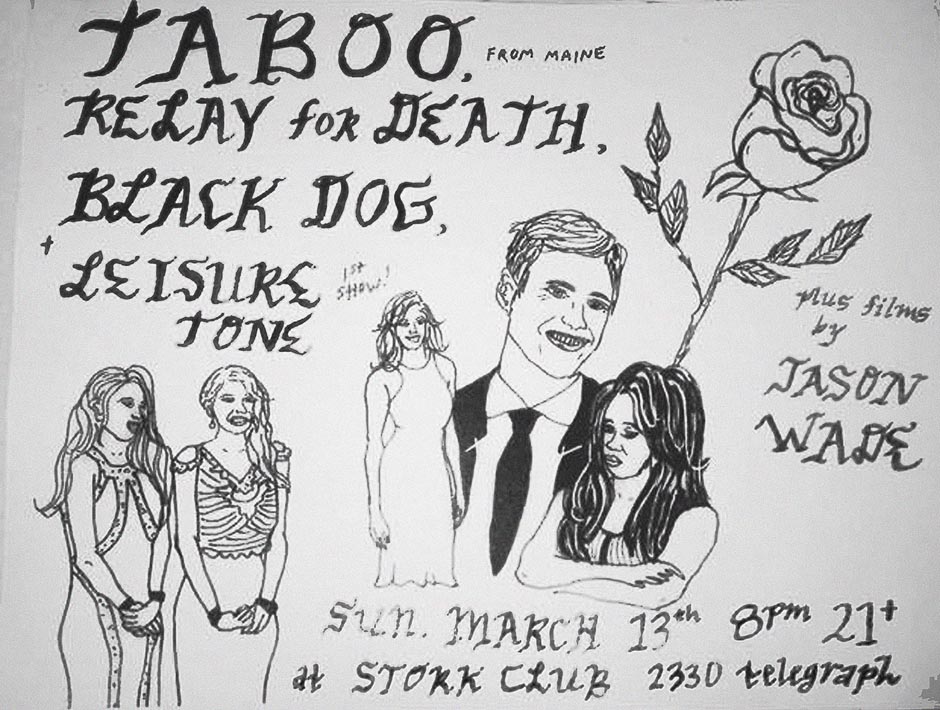 TABOO, FROM MAINE
RELAY for DEATH,
BLACK DOG,
+ LEISURE
TONE
1st
SHOW!
plus films
by
JASON
WADE
SUN. MARCH 13th 8pm 21+
at STORK CLUB 2330 telegraph